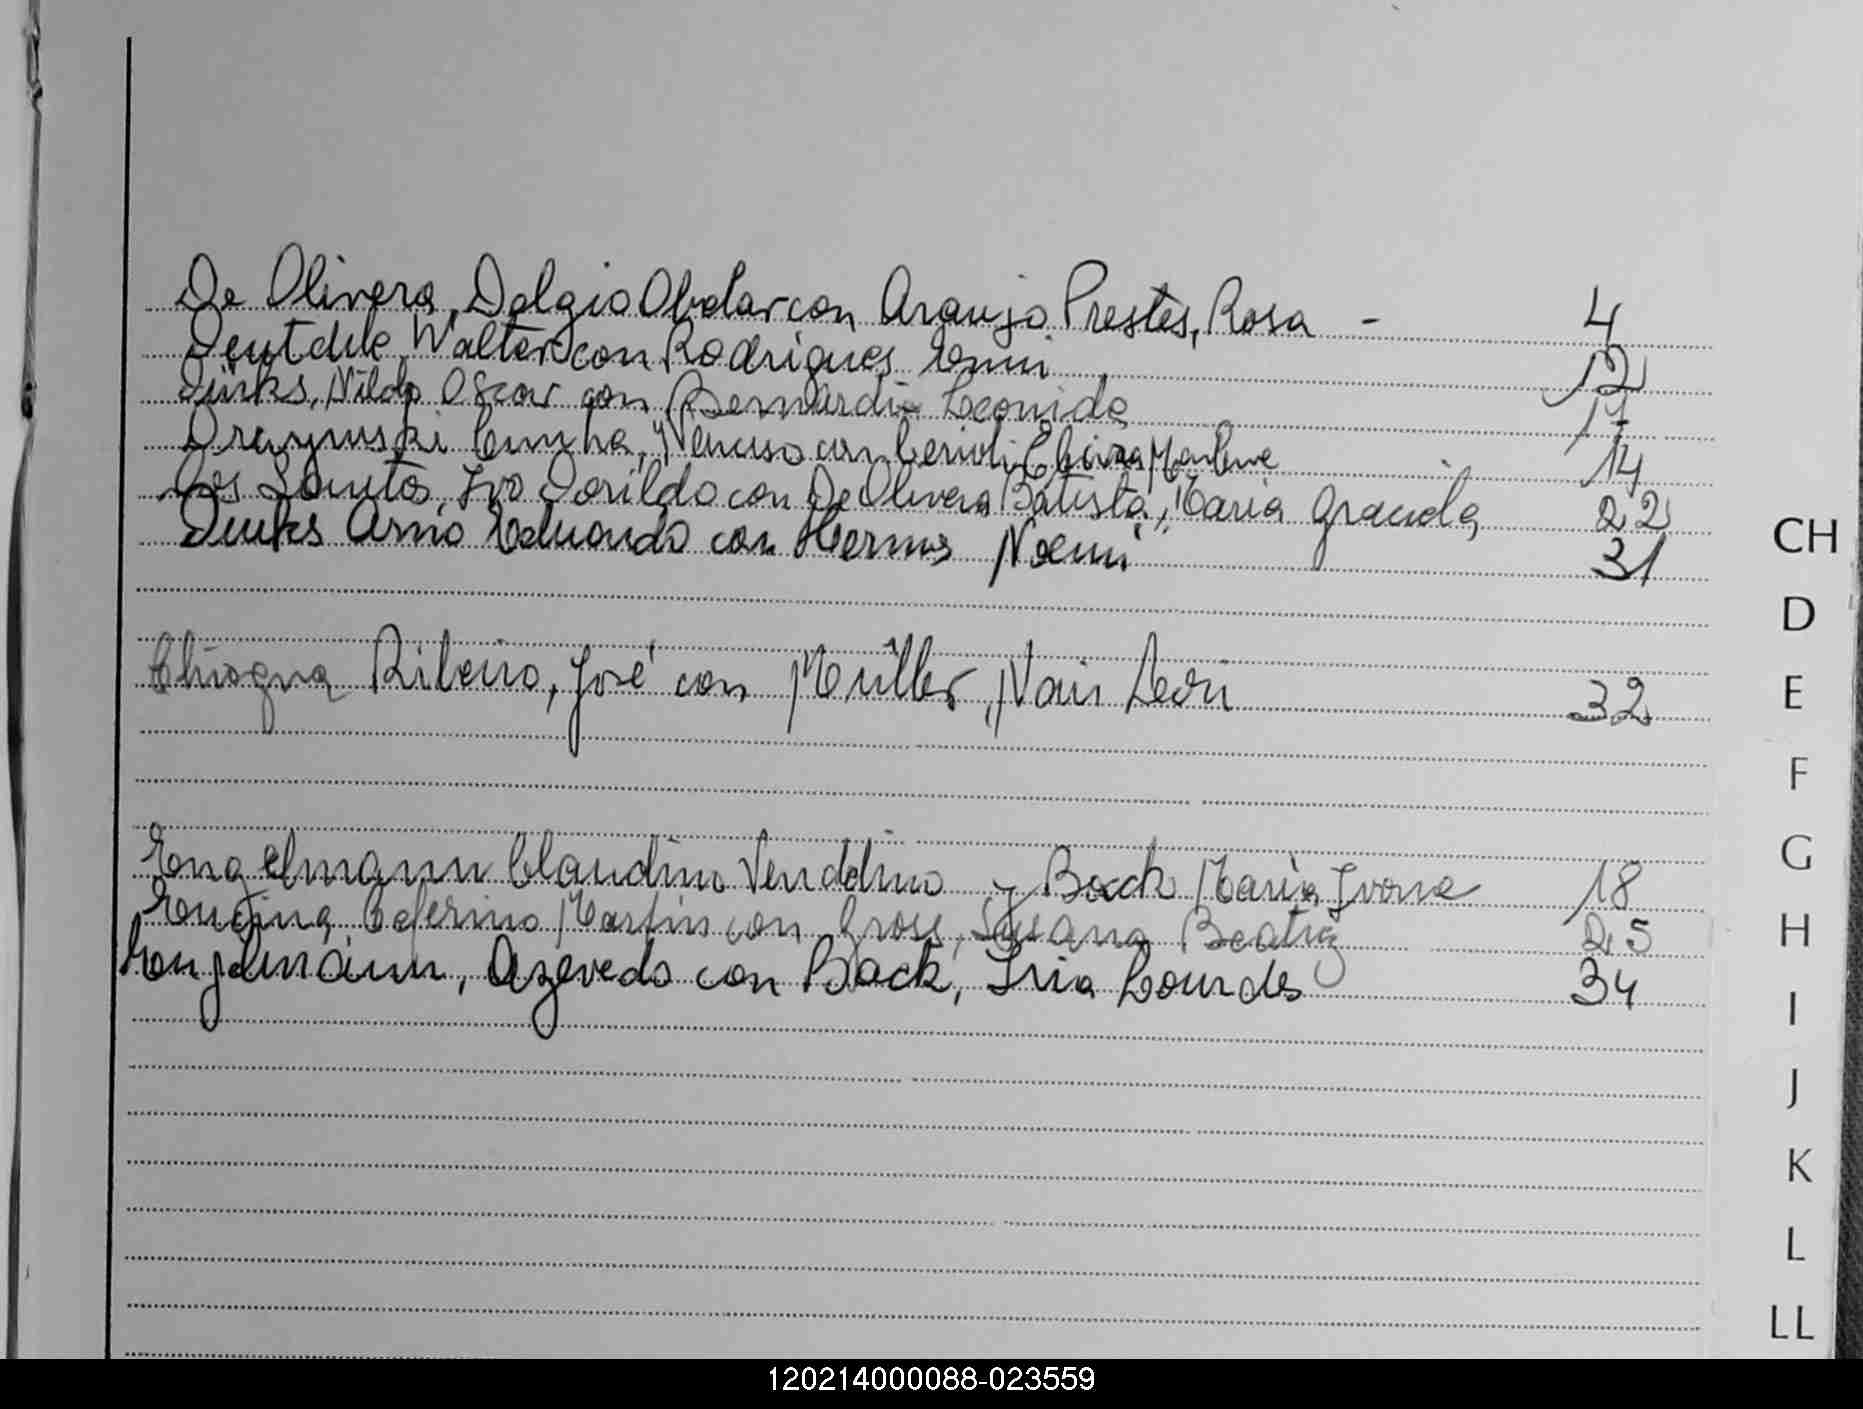 De Olivera, Delgio Obelar con Araujo Prestes, Rosa - 4
Walter con Rodrigues 12
Dirks, Nildo Oscar con Bernardi Leonida 17
14
Dos Santos, Ivo Dorildo con De Olivera Batista, Maria Graciela 22
Dirks Arno Eduardo con Hermes Noemi 31
Ribeiro, José con Müller, Nair Leoni 32
Engelmann Claudino y Back Maria Ivone 18
Ceferino Martin con Gross, Susana Beatriz 25
Engelmann, Azevedo con Back, Iria Lourdes 34
CH
D
E
F
G
H
I
J
K
L
LL
120214000088-023559